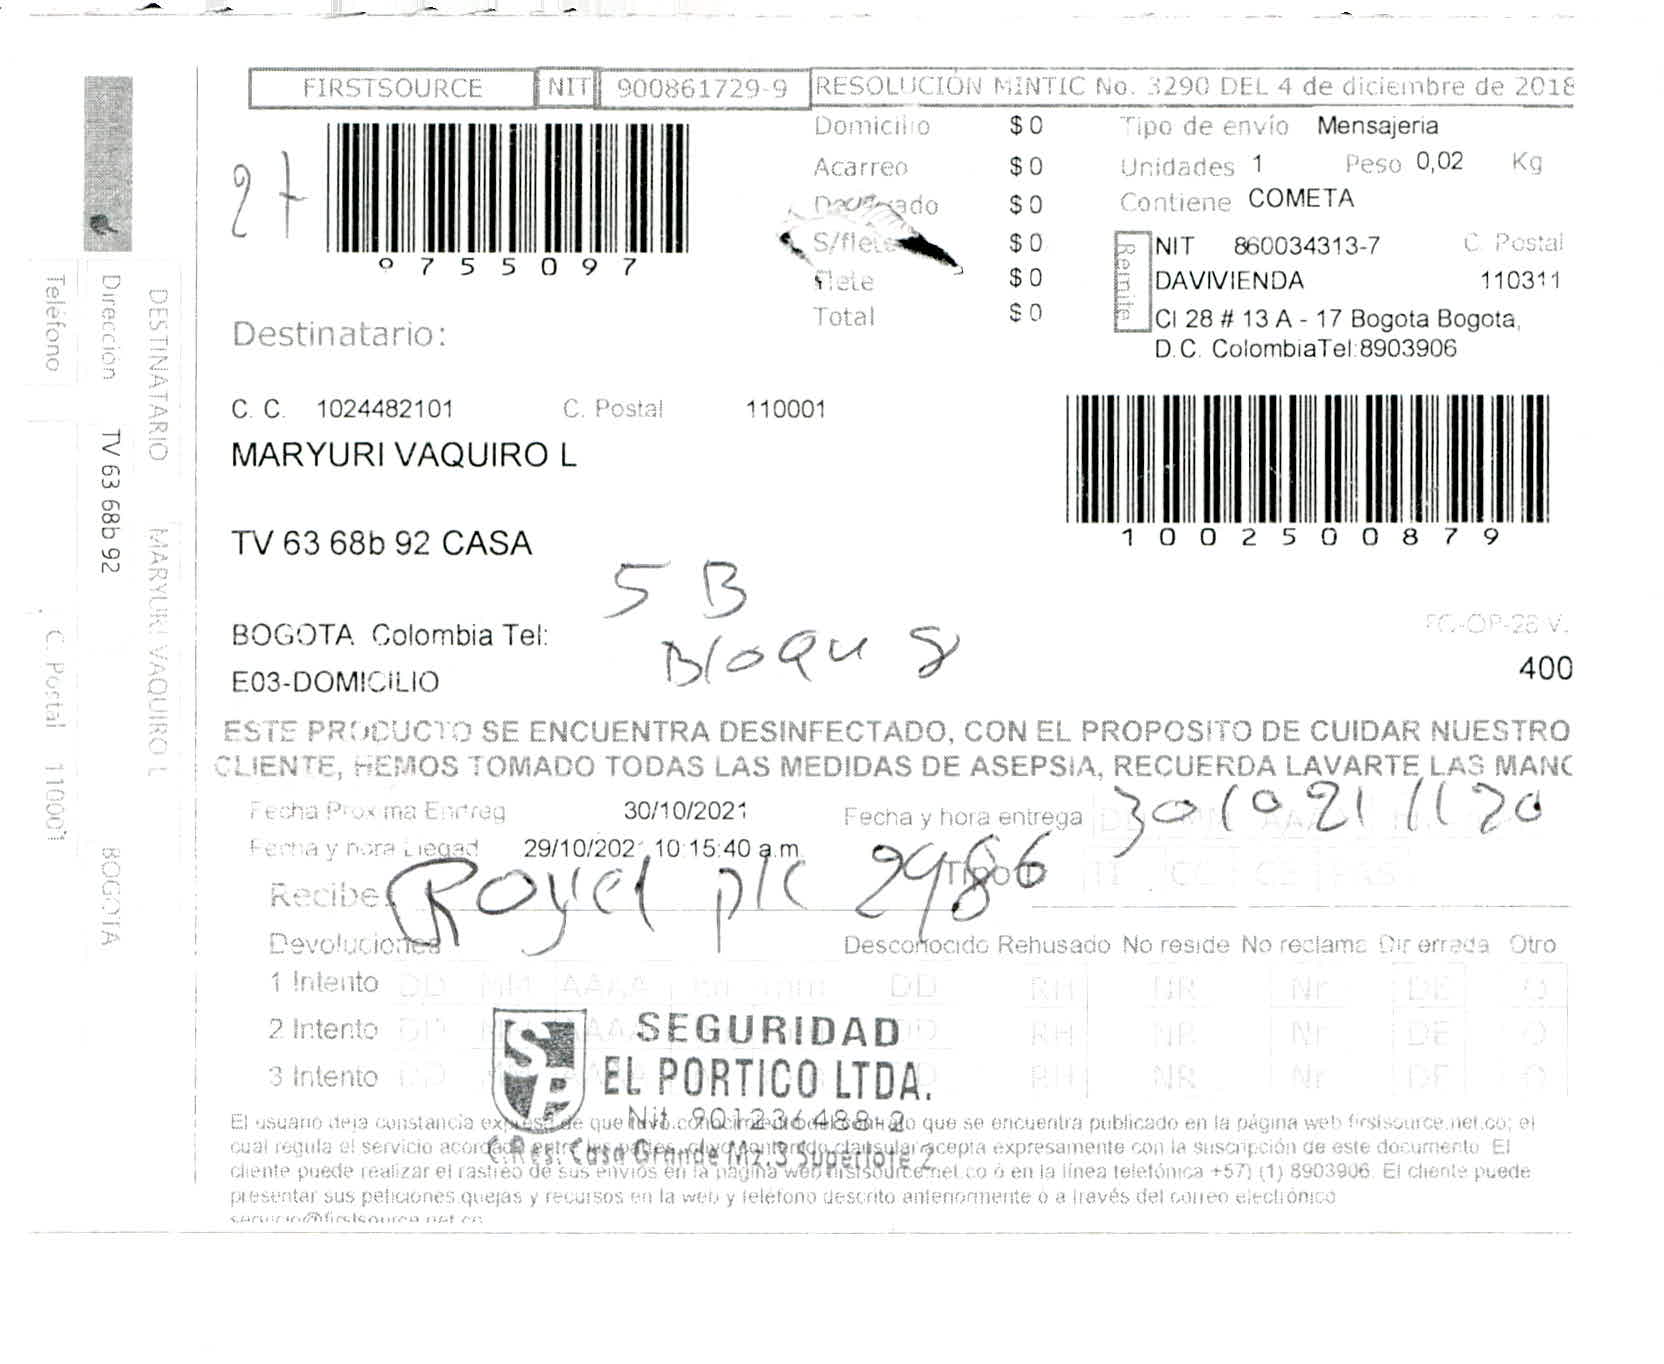 FIRSTSOURCE NIT 900861729-9 RESOLUCIÓN MINTIC No. 3290 DEL 4 de diciembre de 2018
27
9755097
Domicilio $ 0
Acarreo $ 0
$ 0
S/flete $ 0
Flete $ 0
Total $ 0
Tipo de envío Mensajeria
Unidades 1 Peso 0,02 Kg
Contiene COMETA
Remite
NIT 860034313-7 C. Postal
DAVIVIENDA 110311
Cl 28 # 13 A - 17 Bogota Bogota,
D.C. ColombiaTel:8903906
Destinatario:
C. C. 1024482101 C. Postal 110001
MARYURI VAQUIRO L
1002500879
TV 63 68b 92 CASA
5 B
BOGOTA Colombia Tel:
Bloque 8
E03-DOMICILIO
FC-OP-28 V.
400
ESTE PRODUCTO SE ENCUENTRA DESINFECTADO, CON EL PROPOSITO DE CUIDAR NUESTRO
CLIENTE, HEMOS TOMADO TODAS LAS MEDIDAS DE ASEPSIA, RECUERDA LAVARTE LAS MANO
Fecha Proxima Entreg 30/10/2021 Fecha y hora entrega 30 10 21 1120
Fecha y hora Llegad 29/10/2021 10:15:40 a.m.
Recibe 2986
TI CC CE PAS
Devoluciones Desconocido Rehusado No reside No reclama Dir errada Otro
1 Intento DD MM AAAA hh mm DD RH NR Nr DE O
2 Intento DD AAAA DD RH NR Nr DE O
3 Intento DD RH NR Nr DE O
SP
SEGURIDAD
EL PORTICO LTDA.
Nit. 901236488-2
C. Res. Casa Grande Mz. 3 Superlote 2
El usuario deja constancia expresa de que tuvo conocimiento del contrato que se encuentra publicado en la página web firstsource.net.co; el
cual regula el servicio acordado entre las partes, cuyo contenido clausular acepta expresamente con la suscripción de este documento. El
cliente puede realizar el rastreo de sus envíos en la página web firstsource.net.co ó en la línea telefónica +57) (1) 8903906. El cliente puede
presentar sus peticiones quejas y recursos en la web y teléfono descrito anteriormente o a través del correo electrónico
servicio@firstsource.net.co
DESTINATARIO MARYURI VAQUIRO L
Dirección TV 63 68b 92 BOGOTA
Teléfono C. Postal 110001